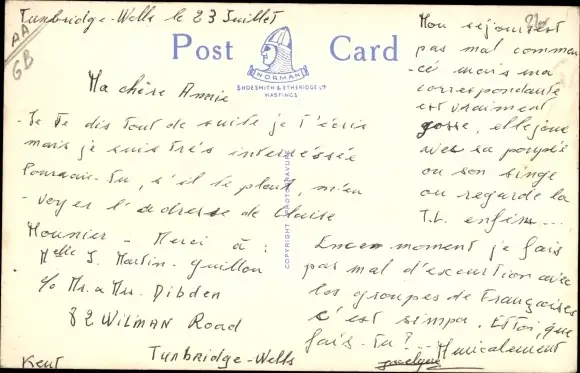 Tunbridge-Wells le 23 Juillet
AA
GB
Post Card
NORMAN
SHOESMITH & ETHERIDGE LTD
HASTINGS
COPYRIGHT PHOTOGRAVURE
Ma chère Annie
- Je te dis tout de suite je t'écris
mais je suis très interessée
Pourrais-tu, s'il te plaît, m'en
- voyer l'adresse de Claise
Mounier - Merci à :
Melle J. Martin-Guillou
c/o Mr. & Mrs. Dibden
82 WILMAN Road
Tunbridge-Wells
Kent
Mon séjour est
pas mal commen
-cé mais ma
correspondante
est vraiment
gosse, elle joue
avec sa poupée
ou son singe
ou regarde la
T.L. enfin...
En ce moment je fais
pas mal d'excurtion avec
les groupes de Françaises
c'est sympa. Et toi, que
fais-tu ?.. Amicalement